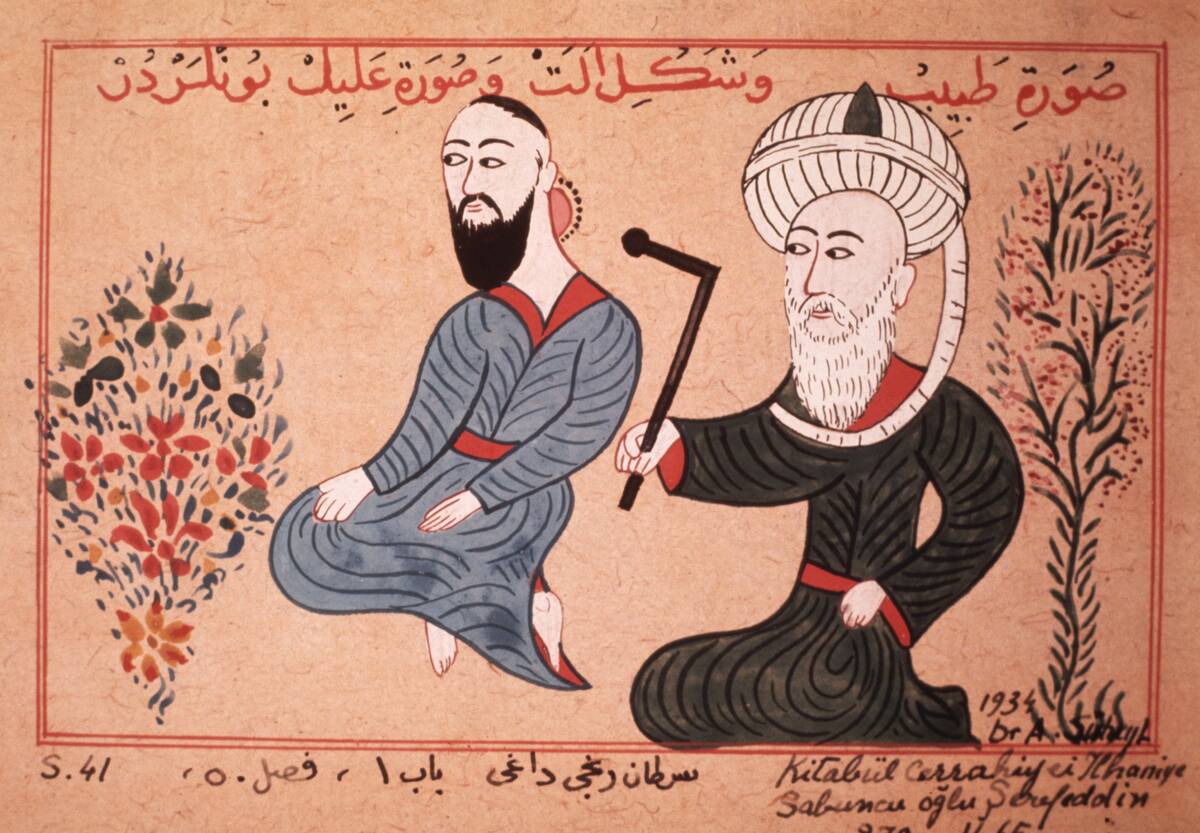 صُورَةِ طَبِيبْ وَشَكْلِ اَلَتْ وَصُورَةِ عَلِيلْ بُونْلَرْدُرْ
1934
Dr A. Süheyl
S. 41
سرطان رنجی داغی باب ١ ، فصل ٥٠ ،
Kitabül cerrahiyei Ilhaniye
Sabuncu oğlu Şerefeddin